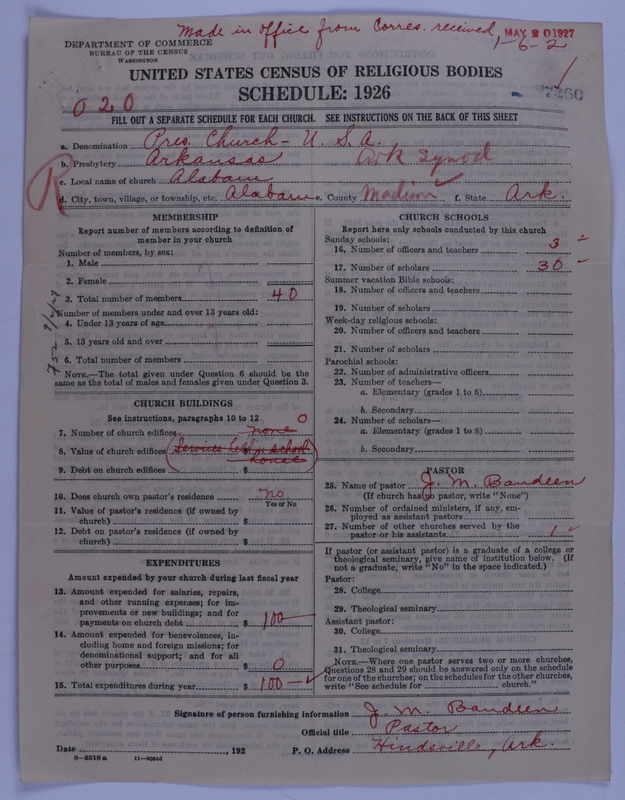 Made in office from Corres. received
MAY 20 1927
1-6-2
DEPARTMENT OF COMMERCE
BUREAU OF THE CENSUS
WASHINGTON
UNITED STATES CENSUS OF RELIGIOUS BODIES
SCHEDULE: 1926
7260
020
FILL OUT A SEPARATE SCHEDULE FOR EACH CHURCH. SEE INSTRUCTIONS ON THE BACK OF THIS SHEET
R
a. Denomination Pres. Church - U. S. A.
b. Presbytery Arkansas Ark Synod
c. Local name of church Alabam
d. City, town, village, or township, etc. Alabam e. County Madison f. State Ark.
MEMBERSHIP
Report number of members according to definition of
member in your church
Number of members, by sex:
1. Male
2. Female
3. Total number of members 40
Number of members under and over 13 years old:
4. Under 13 years of age
5. 13 years old and over
6. Total number of members
NOTE.—The total given under Question 6 should be the
same as the total of males and females given under Question 3.
CHURCH BUILDINGS
See instructions, paragraphs 10 to 12 0
7. Number of church edifices none
8. Value of church edifices Services held in school
house
9. Debt on church edifices $
10. Does church own pastor's residence no
Yes or No
11. Value of pastor's residence (if owned by
church) $
12. Debt on pastor's residence (if owned by
church) $
EXPENDITURES
Amount expended by your church during last fiscal year
13. Amount expended for salaries, repairs,
and other running expenses; for im-
provements or new buildings; and for
payments on church debt $ 100—
14. Amount expended for benevolences, in-
cluding home and foreign missions; for
denominational support; and for all
other purposes $ 0
15. Total expenditures during year $ 100—
CHURCH SCHOOLS
Report here only schools conducted by this church
Sunday schools:
16. Number of officers and teachers 3
17. Number of scholars 30
Summer vacation Bible schools:
18. Number of officers and teachers
19. Number of scholars
Week-day religious schools:
20. Number of officers and teachers
21. Number of scholars
Parochial schools:
22. Number of administrative officers
23. Number of teachers—
a. Elementary (grades 1 to 8)
b. Secondary
24. Number of scholars—
a. Elementary (grades 1 to 8)
b. Secondary
PASTOR
25. Name of pastor J. M. Baudeen
(If church has no pastor, write "None")
26. Number of ordained ministers, if any, em-
ployed as assistant pastors
27. Number of other churches served by the
pastor or his assistants 1
If pastor (or assistant pastor) is a graduate of a college or
theological seminary, give name of institution below. (If
not a graduate, write "No" in the space indicated.)
Pastor:
28. College
29. Theological seminary
Assistant pastor:
30. College
31. Theological seminary
NOTE.—Where one pastor serves two or more churches,
Questions 28 and 29 should be answered only on the schedule
for one of the churches; on the schedules for the other churches,
write "See schedule for church."
Signature of person furnishing information J. M. Baudeen
Official title Pastor
Date , 192 P. O. Address Hindsville, Ark.
8-5518 a